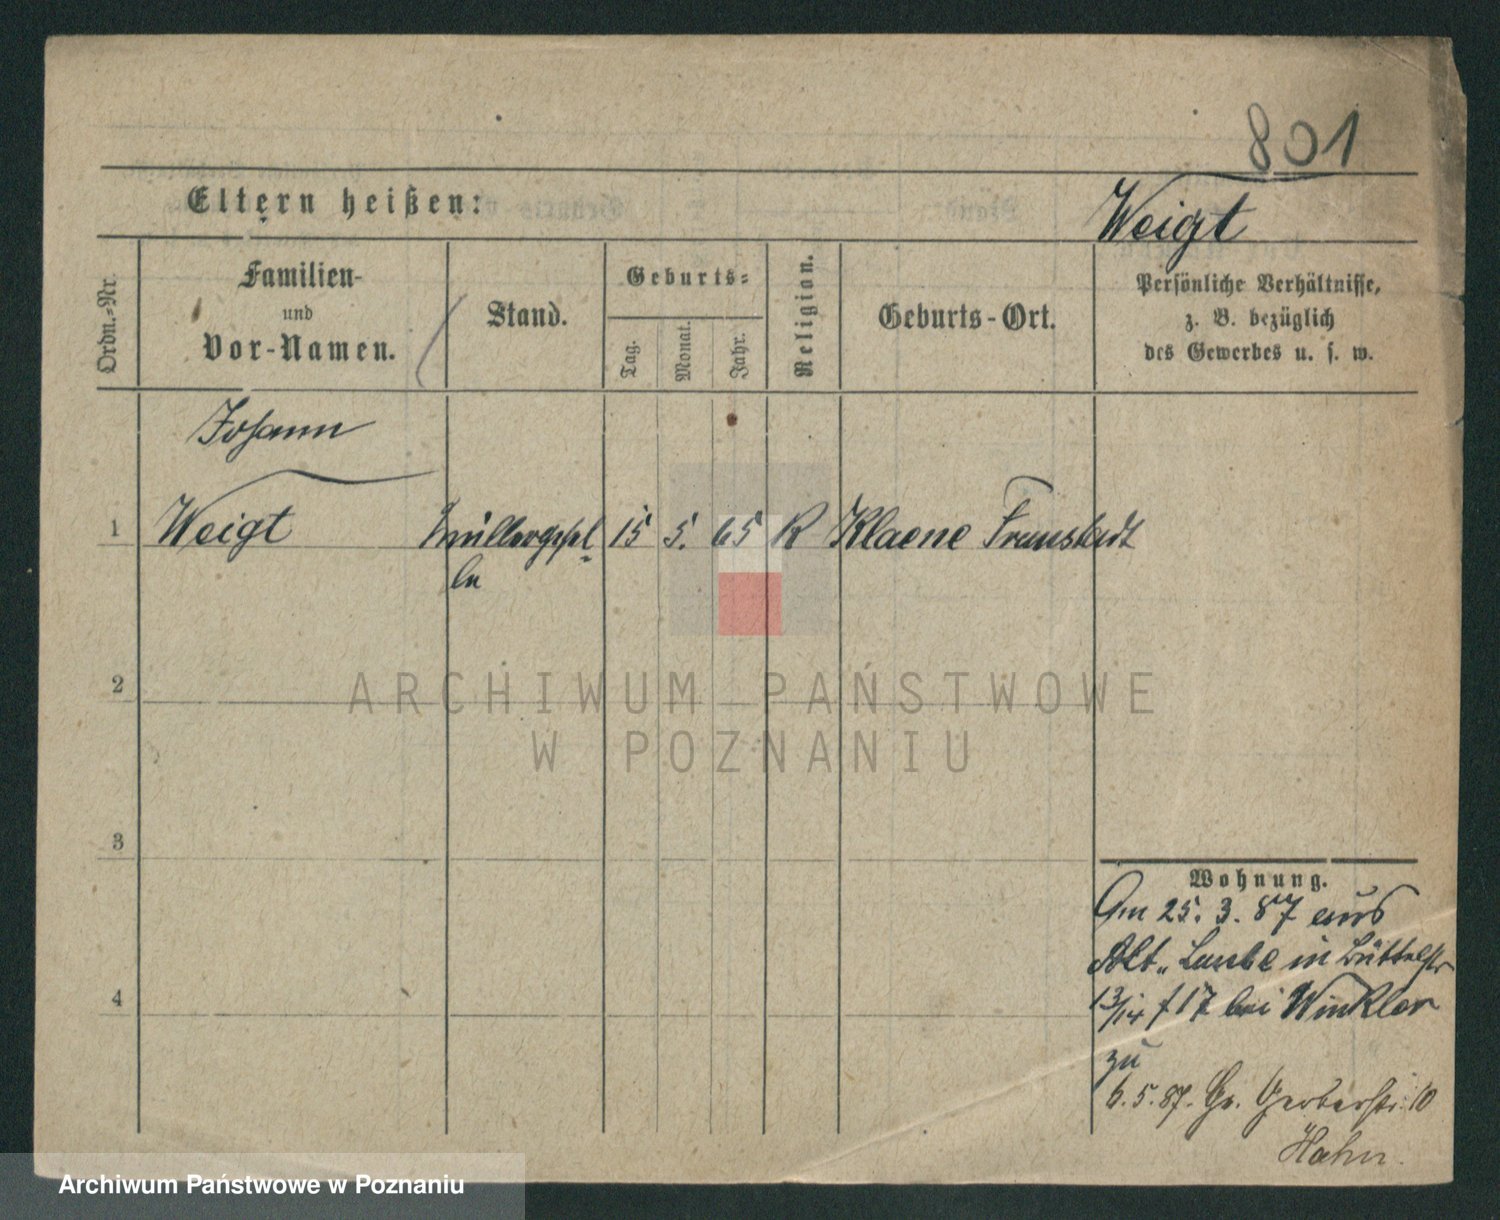 801
Eltern heißen:
Weigt
Ordn.-Nr.
Familien-
und
Vor-Namen.
Stand.
Geburts-
Tag.
Monat.
Jahr.
Religion.
Geburts-Ort.
Persönliche Verhältnisse,
z. B. bezüglich
des Gewerbes u. s. w.
Johann
1 Weigt Müllergesel- 15 5. 65 K Klaene Fraustadt
le
2
ARCHIWUM PAŃSTWOWE
W POZNANIU
3
Wohnung.
Am 25. 3. 87 aus
Alt-Laube in Büttelstr
13/14 f 17 bei Winkler
4
zu
6. 5. 87. Gr. Gerberstr. 10
Hahn.
Archiwum Państwowe w Poznaniu